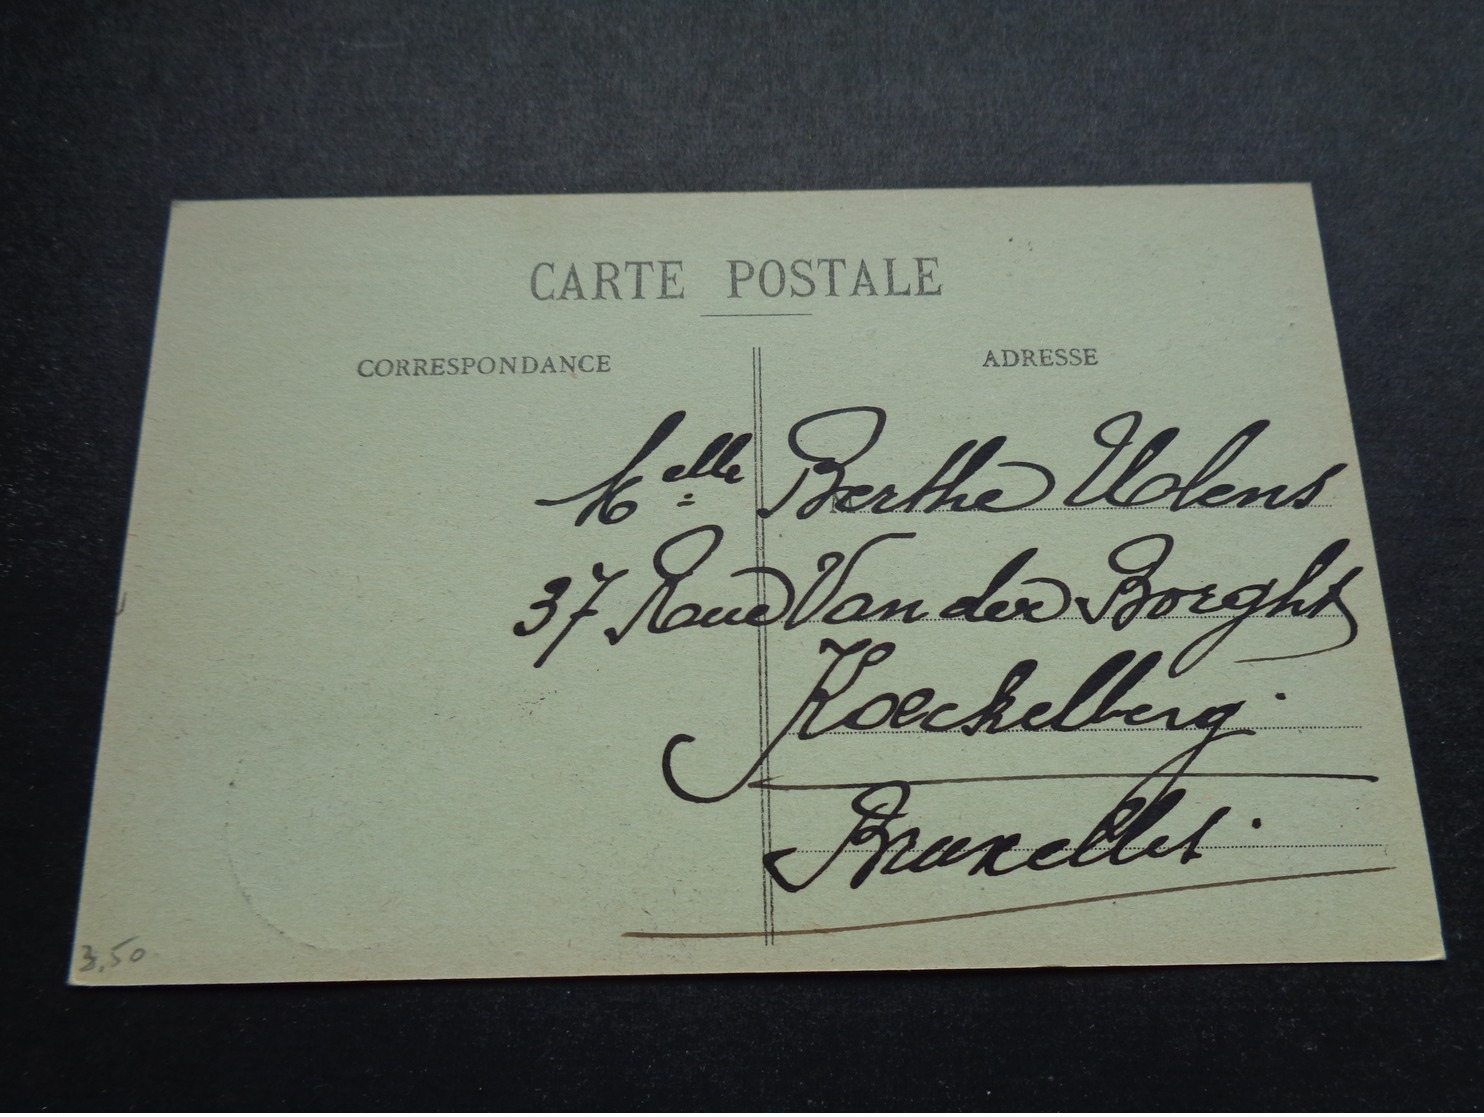 CARTE POSTALE
CORRESPONDANCE
ADRESSE
Melle Berthe Ulens
37 Rue Van der Borght
Koeckelberg.
Bruxelles.
3,50